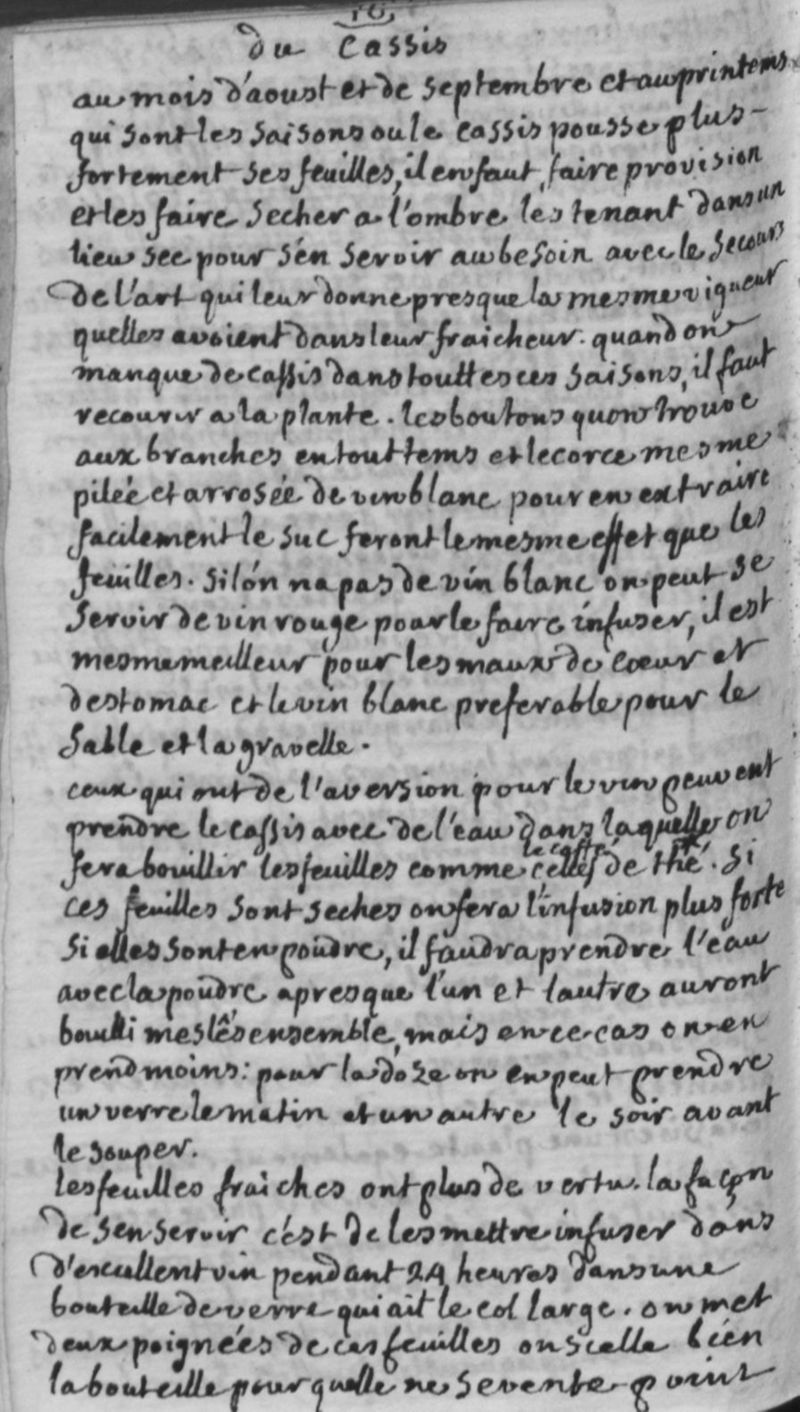 10.
du Cassis
au mois d'aoust et de septembre et au printems
qui sont les saisons ou le cassis pousse plus-
fortement ses feuilles, il en faut faire provision
et les faire secher a l'ombre les tenant dans un
lieu sec pour s'én servoir au besoin avec le secours
de l'art qui leur donne presque la mesme vigueur
quelles avoient dans leur fraicheur. quand on
manque de cassis dans touttes ces saisons, il faut
recourir a la plante. les boutons quon trouve
aux branches en tout tems et lecorce mesme
pilée et arrosée de vin blanc pour en extraire
facilement le suc feront le mesme effet que les
feuilles. si lón na pas de vin blanc on peut se
servoir de vin rouge pour le faire infuser, il est
mesme meilleur pour les maux de cœur et
destomac et le vin blanc preferable pour le
sable et la gravelle.
ceux qui ont de l'aversion pour le vin peuvent
prendre le cassis avec de l'eau dans laquelle on
fera bouillir les feuilles comme celles de thé. si
ces feuilles sont seches on fera l'infusion plus forte
si elles sont en poudre, il faudra prendre l'eau
avec la poudre apres que l'un et lautre auront
boulli meslés ensemble, mais en ce cas on en
prend moins: pour la doze on en peut prendre
un verre le matin et un autre le soir avant
le souper.
les feuilles fraiches ont plus de vertu. la façon
de sen servoir c'est de les mettre infuser dans
d'excellent vin pendant 24 heures dans une
bouteille de verre qui ait le col large. on met
deux poignées de ces feuilles on scelle bien
la bouteille pour quelle ne sevente point